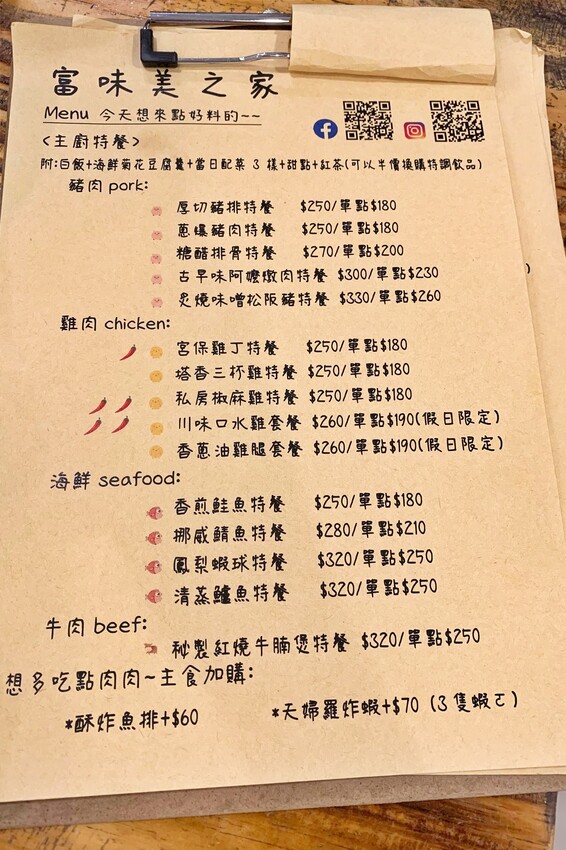 富味美之家
Menu 今天想來點好料的~~
<主廚特餐>
附:白飯+海鮮菊花豆腐羹+當日配菜 3 樣+甜點+紅茶(可以半價換購特調飲品)
豬肉 pork:
厚切豬排特餐 $250/單點$180
蔥爆豬肉特餐 $250/單點$180
糖醋排骨特餐 $270/單點$200
古早味阿嬤燉肉特餐 $300/單點$230
炙燒味噌松阪豬特餐 $330/單點$260
雞肉 chicken:
宮保雞丁特餐 $250/單點$180
塔香三杯雞特餐 $250/單點$180
私房椒麻雞特餐 $250/單點$180
川味口水雞套餐 $260/單點$190(假日限定)
香蔥油雞腿套餐 $260/單點$190(假日限定)
海鮮 seafood:
香煎鮭魚特餐 $250/單點$180
挪威鯖魚特餐 $280/單點$210
鳳梨蝦球特餐 $320/單點$250
清蒸鱸魚特餐 $320/單點$250
牛肉 beef:
秘製紅燒牛腩煲特餐 $320/單點$250
想多吃點肉肉~主食加購:
*酥炸魚排+$60 *天婦羅炸蝦+$70 (3 隻蝦ㄛ)